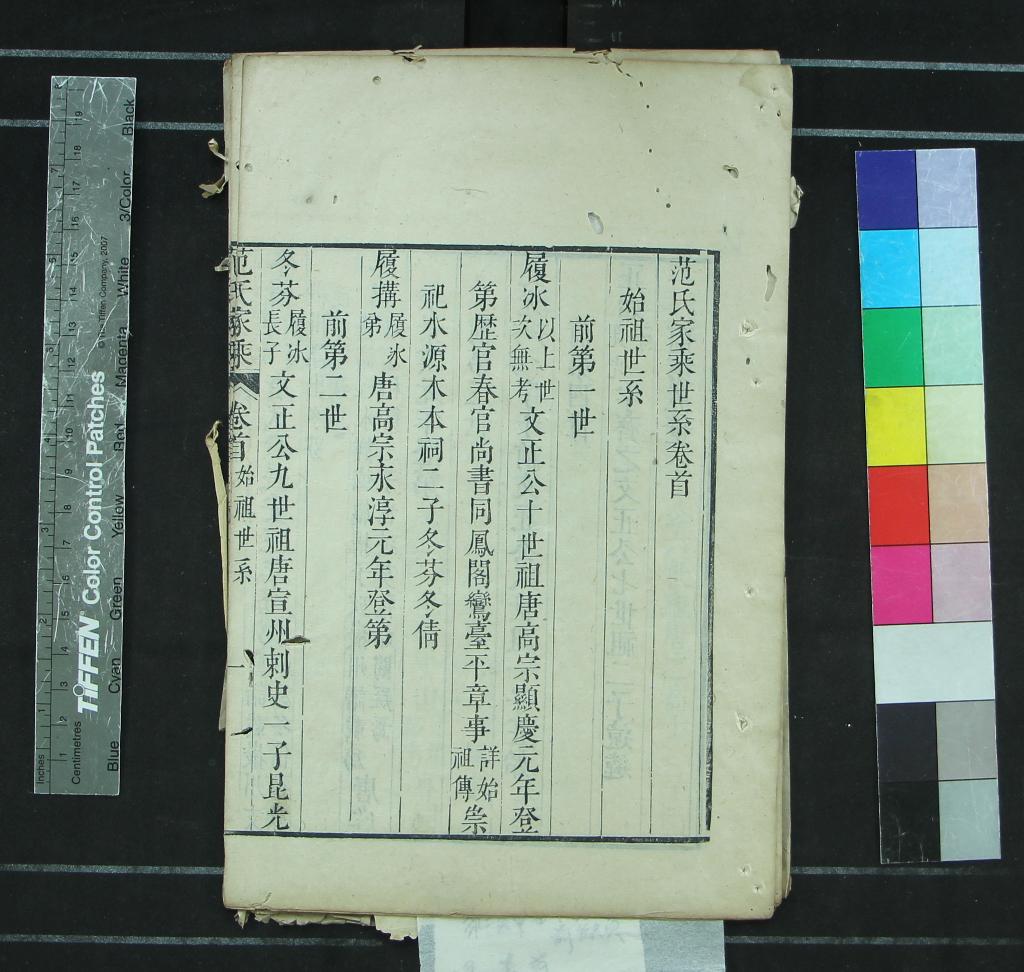 范氏家乘世系卷首
始祖世系
前第一世
履冰以上世次無考文正公十世祖唐高宗顯慶元年登
第歷官春官尚書同鳳閣鸞臺平章事詳始祖傳崇
祀水源木本祠二子冬芬冬倩
履搆履氷弟唐高宗永淳元年登第
前第二世
冬芬履冰長子文正公九世祖唐宣州刺史一子昆光
范氏家乘 卷首 始祖世系 一
TIFFEN Color Control Patches
© The Tiffen Company, 2007
Blue Cyan Green Yellow Red Magenta White 3/Color Black
Inches 1 2 3 4 5 6 7 8
Centimetres 1 2 3 4 5 6 7 8 9 10 11 12 13 14 15 16 17 18 19